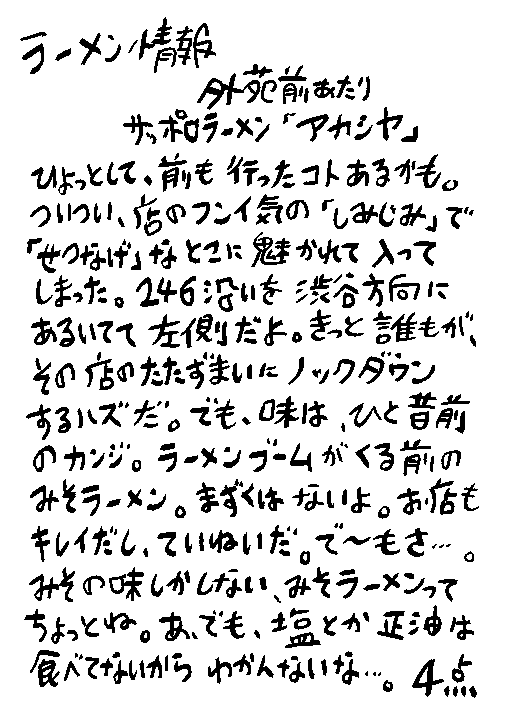 ラーメン情報
外苑前あたり
サッポロラーメン「アカシヤ」
ひょっとして、前も行ったコトあるかも。
ついつい、店のフンイ気の「しみじみ」で
「せつなげ」なとこに魅かれて入って
しまった。246沿いを渋谷方向に
あるいてて左側だよ。きっと誰もが、
その店のたたずまいにノックダウン
するハズだ。でも、味は、ひと昔前
のカンジ。ラーメンブームがくる前の
みそラーメン。まずくはないよ。お店も
キレイだし、ていねいだ。で〜もさ…。
みその味しかしない、みそラーメンって
ちょっとね。あ、でも、塩とか正油は
食べてないからわかんないな…。4点